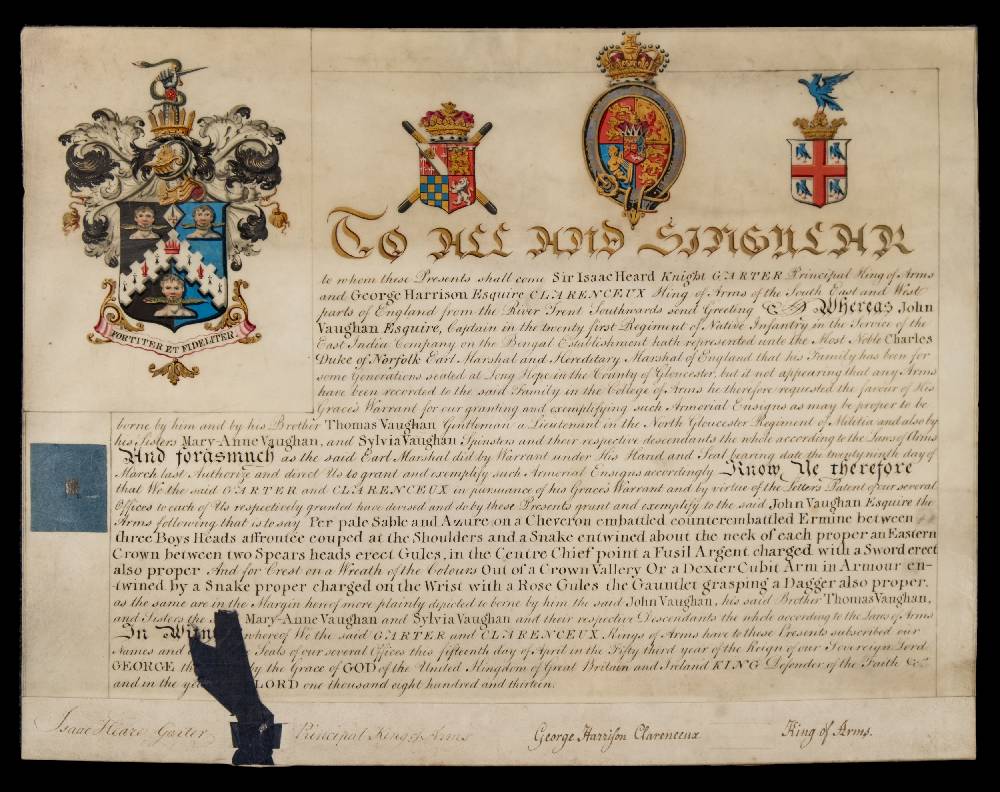 FORTITER ET FIDELITER
TO ALL AND SINGULAR
to whom these Presents shall come Sir Isaac Heard Knight GARTER Principal King of Arms
and George Harrison Esquire CLARENCEUX King of Arms of the South East and West
parts of England from the River Trent Southwards send Greeting Whereas John
Vaughan Esquire, Captain in the twenty first Regiment of Native Infantry in the Service of the
East India Company on the Bengal Establishment hath represented unto the Most Noble Charles
Duke of Norfolk Earl Marshal and Hereditary Marshal of England that his Family has been for
some Generations seated at Long Hope in the County of Gloucester, but it not appearing that any Arms
have been recorded to the said Family in the College of Arms he therefore requested the favour of His
Grace's Warrant for our granting and exemplifying such Armorial Ensigns as may be proper to be
borne by him and by his Brother Thomas Vaughan Gentleman a Lieutenant in the North Gloucester Regiment of Militia and also by
his Sisters Mary-Anne Vaughan, and Sylvia Vaughan Spinsters and their respective descendants the whole according to the Laws of Arms
And forasmuch as the said Earl Marshal did by Warrant under His Hand and Seal bearing date the twenty ninth day of
March last Authorize and direct Us to grant and exemplify such Armorial Ensigns accordingly Know Ye therefore
that We the said GARTER and CLARENCEUX in pursuance of his Grace's Warrant and by virtue of the Letters Patent of our several
Offices to each of Us respectively granted have devised and do by these Presents grant and exemplify to the said John Vaughan Esquire the
Arms following that is to say Per pale Sable and Azure on a Cheveron embattled counterembattled Ermine between
three Boys Heads affrontée couped at the Shoulders and a Snake entwined about the neck of each proper an Eastern
Crown between two Spears heads erect Gules, in the Centre Chief point a Fusil Argent charged with a Sword erect
also proper And for Crest on a Wreath of the Colours Out of a Crown Vallery Or a Dexter Cubit Arm in Armour en-
twined by a Snake proper charged on the Wrist with a Rose Gules the Gauntlet grasping a Dagger also proper.
as the same are in the Margin hereof more plainly depicted to borne by him the said John Vaughan, his said Brother Thomas Vaughan,
and Sisters the Mary-Anne Vaughan and Sylvia Vaughan and their respective Descendants the whole according to the Laws of Arms
In whereof We the said GARTER and CLARENCEUX Kings of Arms have to these Presents subscribed our
Names and Seals of our several Offices this fifteenth day of April in the Fifty third year of the Reign of our Sovereign Lord
GEORGE the by the Grace of GOD of the United Kingdom of Great Britain and Ireland KING Defender of the Faith &c.
and in the LORD one thousand eight hundred and thirteen.
Isaac Heard Garter Principal King of Arms George Harrison Clarenceux King of Arms.